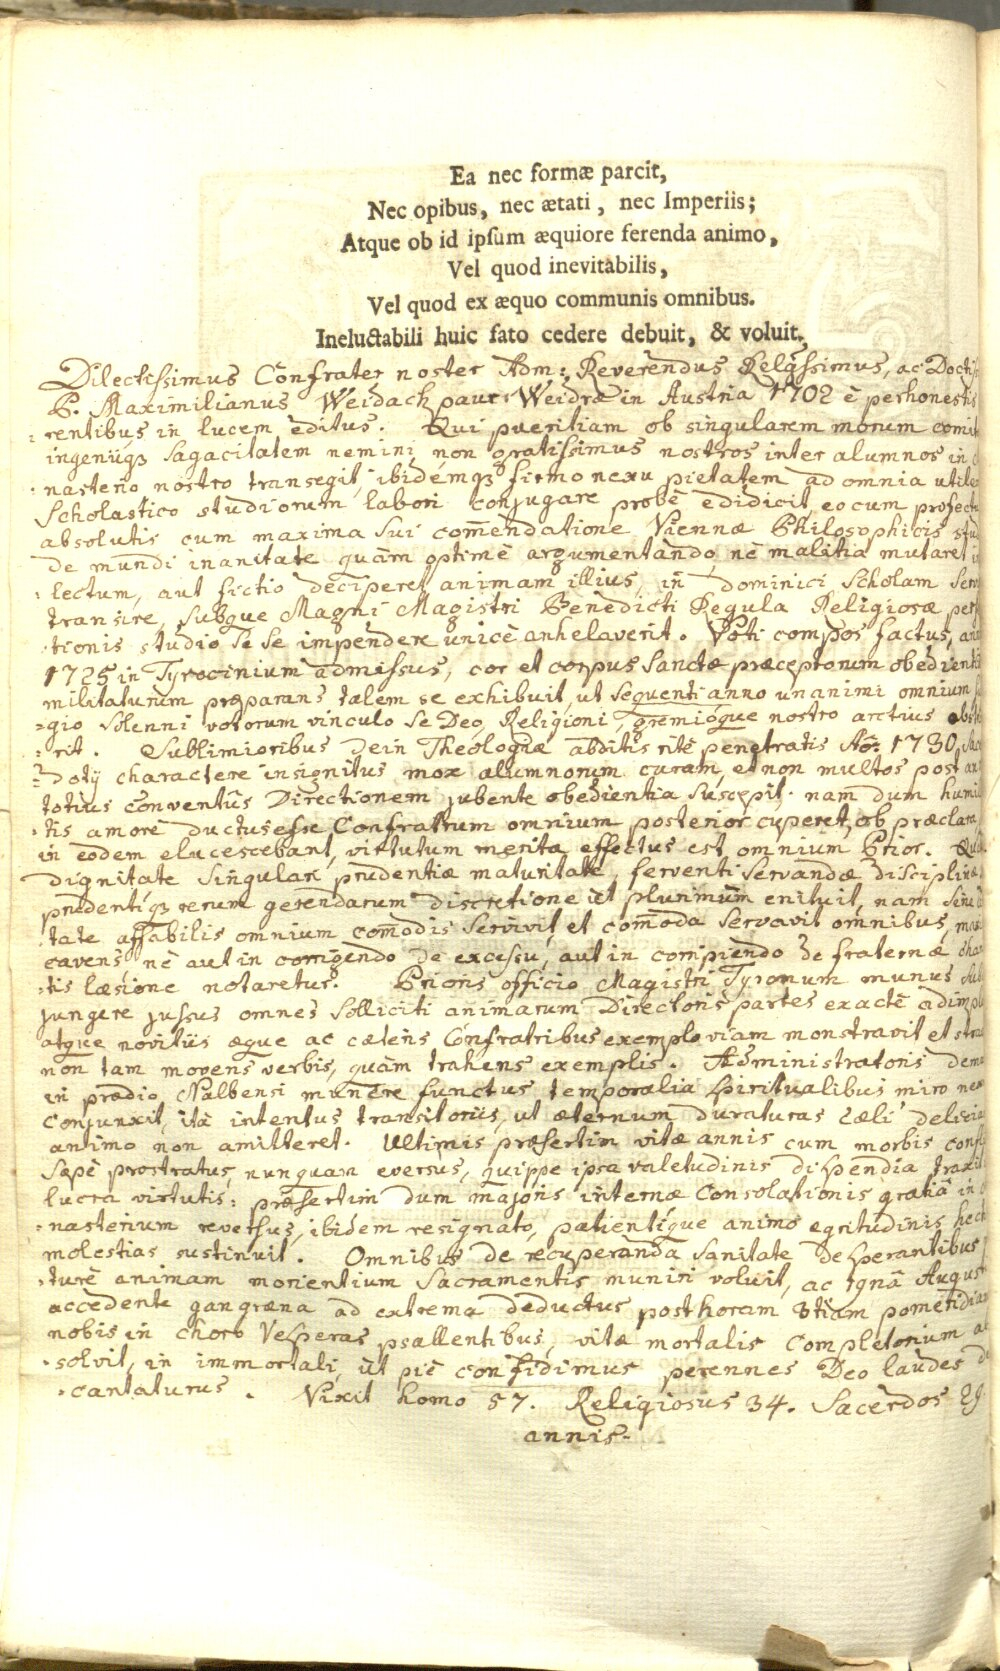 Ea nec formæ parcit,
Nec opibus, nec ætati, nec Imperiis;
Atque ob id ipsum æquiore ferenda animo,
Vel quod inevitabilis,
Vel quod ex æquo communis omnibus.
Ineluctabili huic fato cedere debuit, & voluit,
Dilectissimus Confrater noster Adm: Reverendus Relgssimus, ac Docti
P. Maximilianus Weidach pauer Weidræ in Austria 1702 è perhonestis
rentibus in lucem editus. Qui pueritiam ob singularem morum comit
ingeniiqȝ sagacitatem nemini non gratissimus nostros inter alumnos in
nasterio nostro transegit, ibidémqȝ firmo nexu pietatem ad omnia utilem
Scholastico studiorum labori conjugare probè edidicit, eocum profectu
absolutis cum maxima sui com̄endatione Viennæ Philosophicis stud
de mundi inanitate quàm optimè argumentando, nè malitia mutaret in
lectum, aut fictio deciperet animam illius, in dominici Scholam Serv
transire, subque Magni Magistri Benedicti Regula Religiosæ perf
tionis studio se se impendere unicè anhelaverit. Voti compos factus, an
1725 in Tyrocinium admissus, cor et corpus Sanctæ præceptorum obedientiæ
militaturum præparans talem se exhibuit, ut sequenti anno unanimi omnium
gio solenni votorum vinculo se Deo, Religioni, gremióque nostro arctius obst
rit. Sublimioribus dein Theologiæ abditis ritè penetratis Aō: 1730 Sac
dotij charactere insignitus mox alumnorum curam, et non multos post an
totius conventûs Directionem jubente obedientia suscepit. nam dum humi
tis amore ductus esse Confratrum omnium posterior cuperet, ob præclara
in eodem elucescebant, virtutum merita effectus est omnium Prior. Quâ
dignitate singulari prudentiæ maturitate, ferventi servandæ disciplinæ
prudentiqȝ rerum gerendarum discretione ut plurimùm enituit, nam sinc
tate affabilis omnium com̄odis servivit, et com̄oda servavit omnibus, max
cavens, nè aut in corrigendo de excessu, aut in compiendo de fraternæ char
tis læsione notaretur. Prioris officio Magistri Tyronum munus sub
jungere jussus omnes solliciti animarum Directoris partes exactè adimpl
atque novitiis æque ac cæteris Confratribus exemplo viam monstravit et strav
non tam movens verbis, quàm trahens exemplis. Administratoris dem
in prædio Nalbensi munere functus temporalia spiritualibus miro nex
conjunxit, ità intentus transitoriis, ut æternum duraturas Cæli delicia
animo non amitteret. Ultimis præsertim vitæ annis cum morbis confl
sæpè prostratus, nunquam eversus, quippe ipsa valetudinis dispendia traxit
lucra virtutis: præsertim dum majoris internæ consolationis gratiâ in
nasterium reversus, ibidem resignato, patientíque animo ægritudinis hect
molestias sustinuit. Omnibus de recuperanda sanitate desperantibus
turè animam morientium Sacramentis muniri voluit, ac 1mâ August
accedente gangræna ad extrema deductus post horam 3tiam pomeridian
nobis in choro Vesperas psallentibus, vitæ mortalis Completorium a
solvit, in immortali, ut piè confidimus perennes Deo laudes de
cantaturus. Vixit homo 57. Religiosus 34. Sacerdos 29
annis.